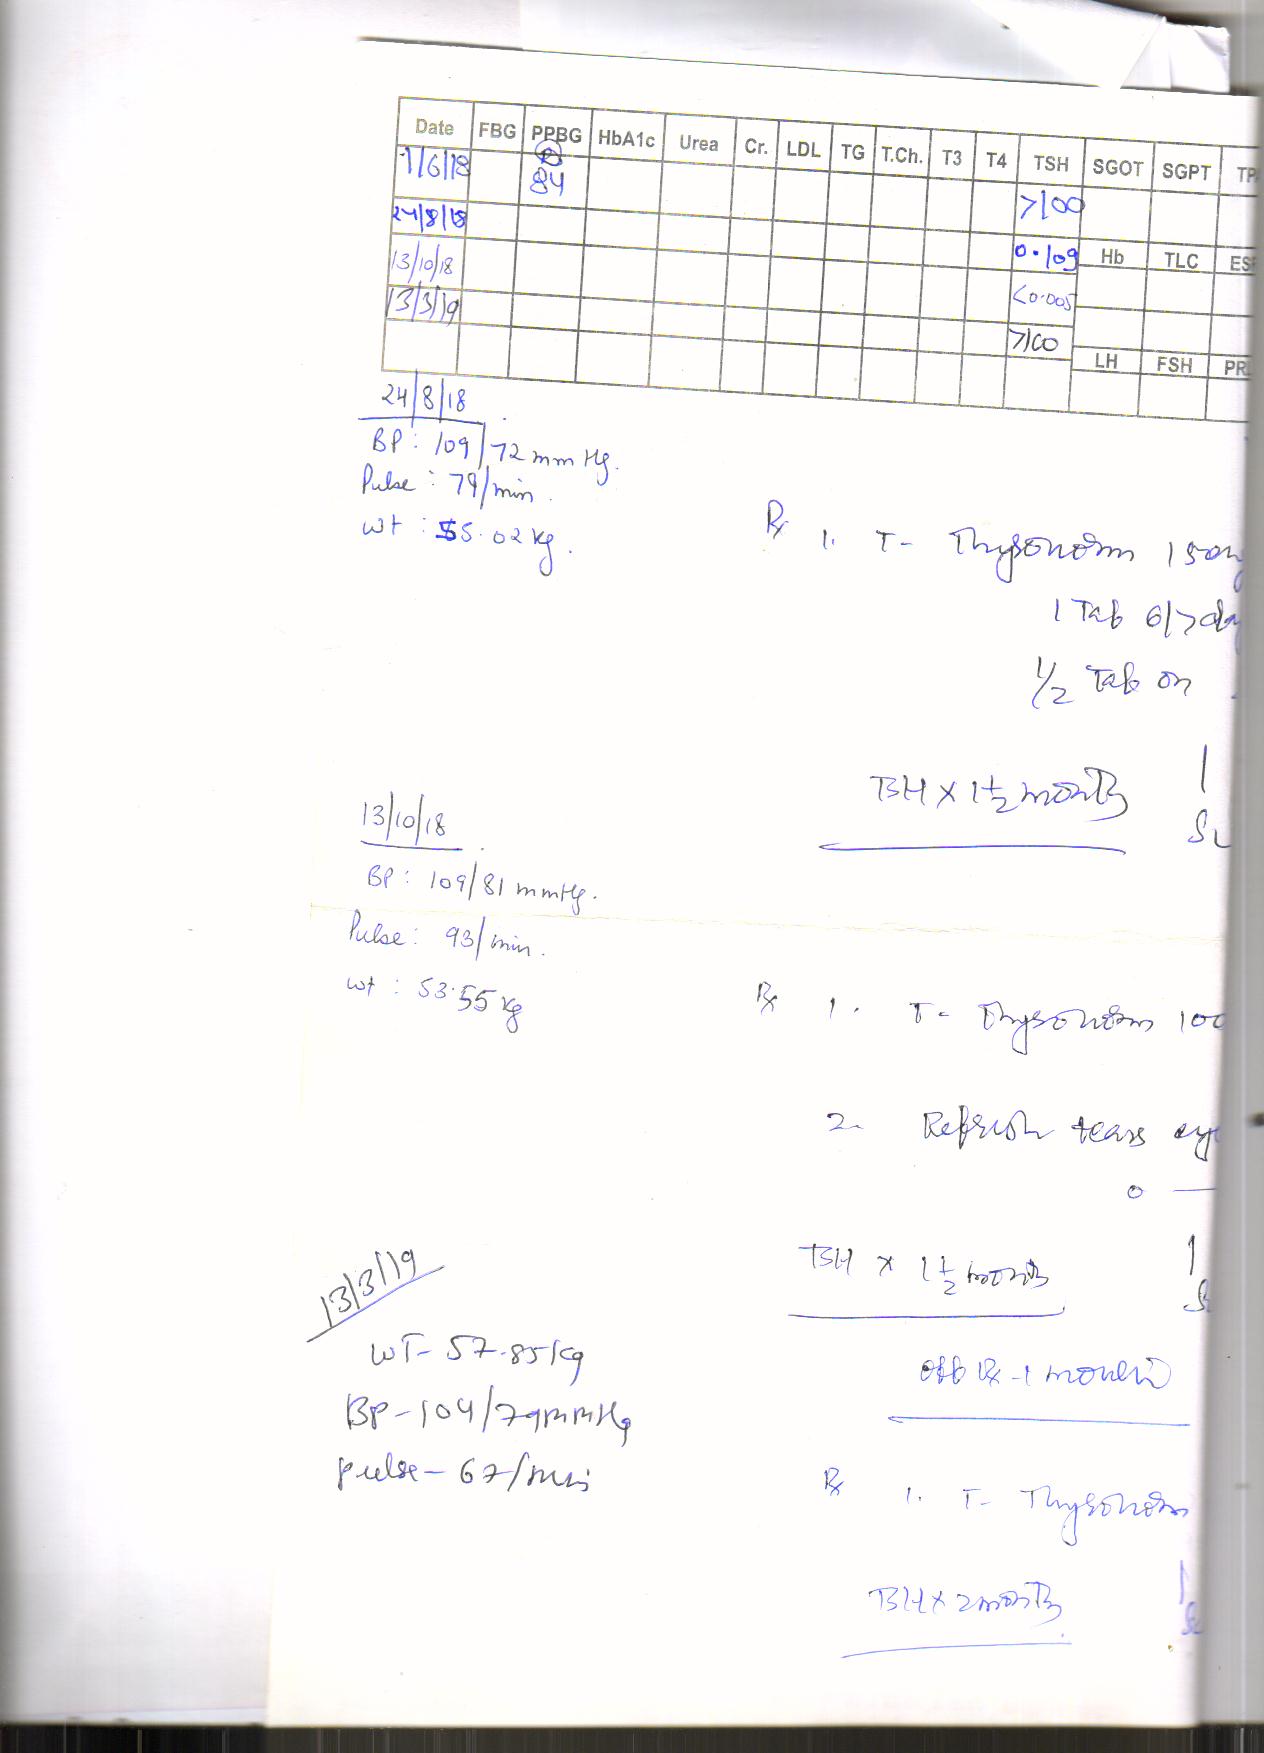 Date FBG PPBG HbA1c Urea Cr. LDL TG T.Ch. T3 T4 TSH SGOT SGPT
7/6/18 84 >100
24/8/18 0.109 Hb TLC
13/10/18 <0.005
13/3/19 >100
LH FSH
24/8/18
BP: 109/72 mm Hg.
Pulse: 79/min.
wt: 55.02 kg.
Rx 1. T- Thyronorm 150
1 Tab 6/7 day
1/2 Tab on
TSH x 1 1/2 months
13/10/18
BP: 109/81 mmHg.
Pulse: 93/min.
wt: 53.55 kg
Rx 1. T- Thyronorm 100
2. Refresh tears eye
0 —
TSH x 1 1/2 months
13/3/19
WT- 57.85 kg
off Rx - 1 month
BP- 104/79 mmHg
pulse- 67/min
Rx 1. T- Thyronorm
TSH x 2 months